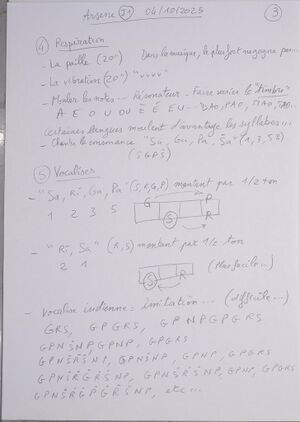 Arsène J1 04/10/2025 3
4 Respiration
- La paille (20") Dans la musique, le plus fort ne gagne pas...
- La vibration (20") "VVVV"
- Monter les notes... Résonateur - Faire varier le "timbre"
A E O U OU É È EU - DAO, PAO, TIAO, TAO...
Certaines langues modulent d'avantage les syllabes...
- Chante la consonance "Sa, Ga, Pa, Ṡa" (1, 3, 5, 8)
(S G P Ṡ)
5 Vocalises
- "Sa, Ri, Ga, Pa" (S, R, G, P) montent par 1/2 ton
1 2 3 5 G P
S R
- "Ri, Sa" (R, S) montent par 1/2 ton
2 1
S R (Plus facile...)
- Vocalise indienne = Imitation... (difficile...)
GRS, GPGRS, GPNPGPGRS
GPNṠNPGPNP, GPGRS
GPNṠṘṠNP, GPNṠNP, GPNP, GPGRS
GPNṠṘĠṘṠNP, GPNṠṘṠNP, GPNP, GPGRS
GPNṠṘĠṖĠṘṠNP, etc...